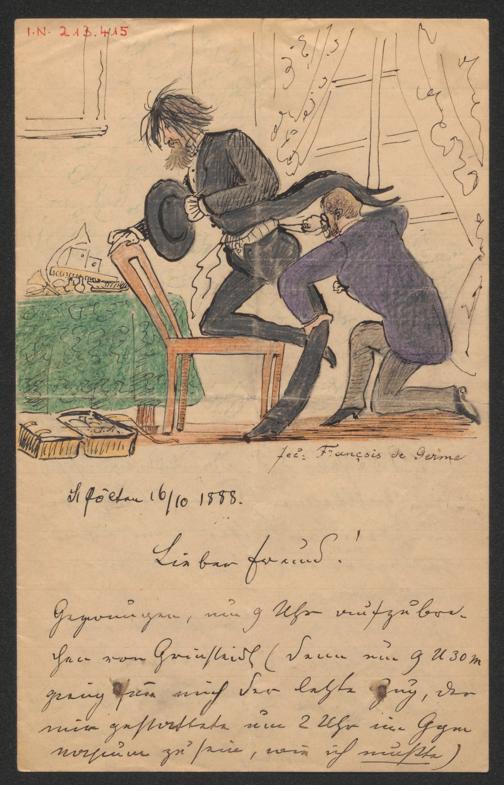 I.N. 213.415
fec: François de
St Pölten 16/10 1888.
Lieber Freund!
Gezwungen, um 9 Uhr aufzubre-
chen von Griensteidl (denn um 9 U 30 m
gieng für mich der letzte Zug, der
mir gestattete um 2 Uhr im Gym
nasium zu sein, wie ich mußte)